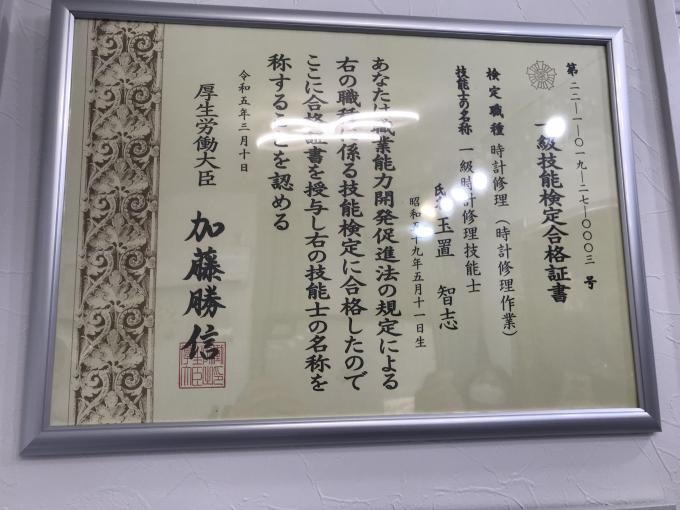 第二二―一―〇一九―二七―〇〇〇三号
一級技能検定合格証書
検定職種 時計修理（時計修理作業）
技能士の名称 一級時計修理技能士
玉置 智志
十九年五月十一日生
あなたは職業能力開発促進法の規定による
右の職種に係る技能検定に合格したので
ここに合格証書を授与し右の技能士の名称を
称することを認める
令和五年三月十日
厚生労働大臣 加藤勝信